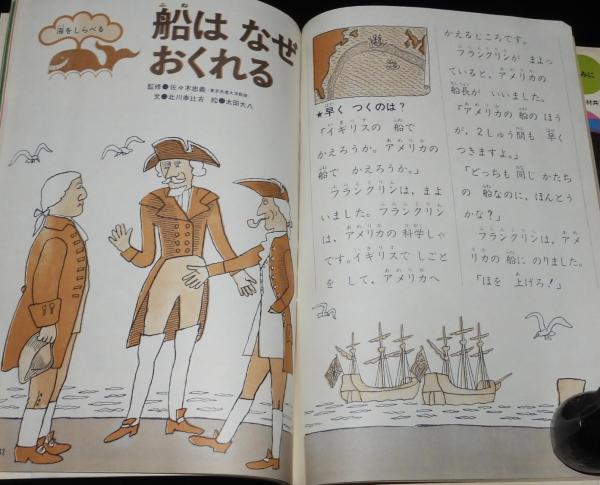 海をしらべる
船は なぜ
おくれる
監修●佐々木忠義（東京水産大学教授）
文●北川幸比古 絵●太田大八
★早く つくのは？
「イギリスの 船で
かえろうか。アメリカの
船で かえろうか。」
フランクリンは、まよ
いました。フランクリン
は、アメリカの 科学しゃ
です。イギリスで しごと
を して、アメリカへ
かえるところです。
フランクリンが まよっ
ていると、アメリカの
船長が いいました。
「アメリカの 船の ほう
が、2しゅう間も 早く
つきますよ。」
「どっちも 同じ かたち
の 船なのに、ほんとう
かな？」
フランクリンは、アメ
リカの 船に のりました。
「ほを 上げろ！」
みに
村井